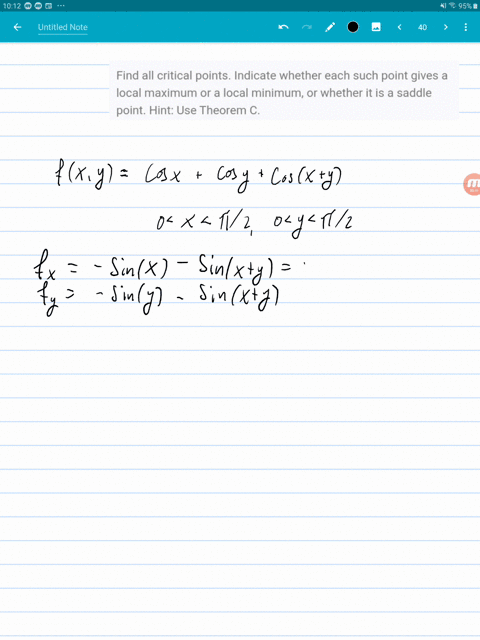 10:12 95%
Untitled Note 40
Find all critical points. Indicate whether each such point gives a
local maximum or a local minimum, or whether it is a saddle
point. Hint: Use Theorem C.
f(x,y) = Cosx + Cosy + Cos(x+y)
0 < x < π/2, 0 < y < π/2
fx = - Sin(x) - Sin(x+y) =
fy = - Sin(y) - Sin(x+y)